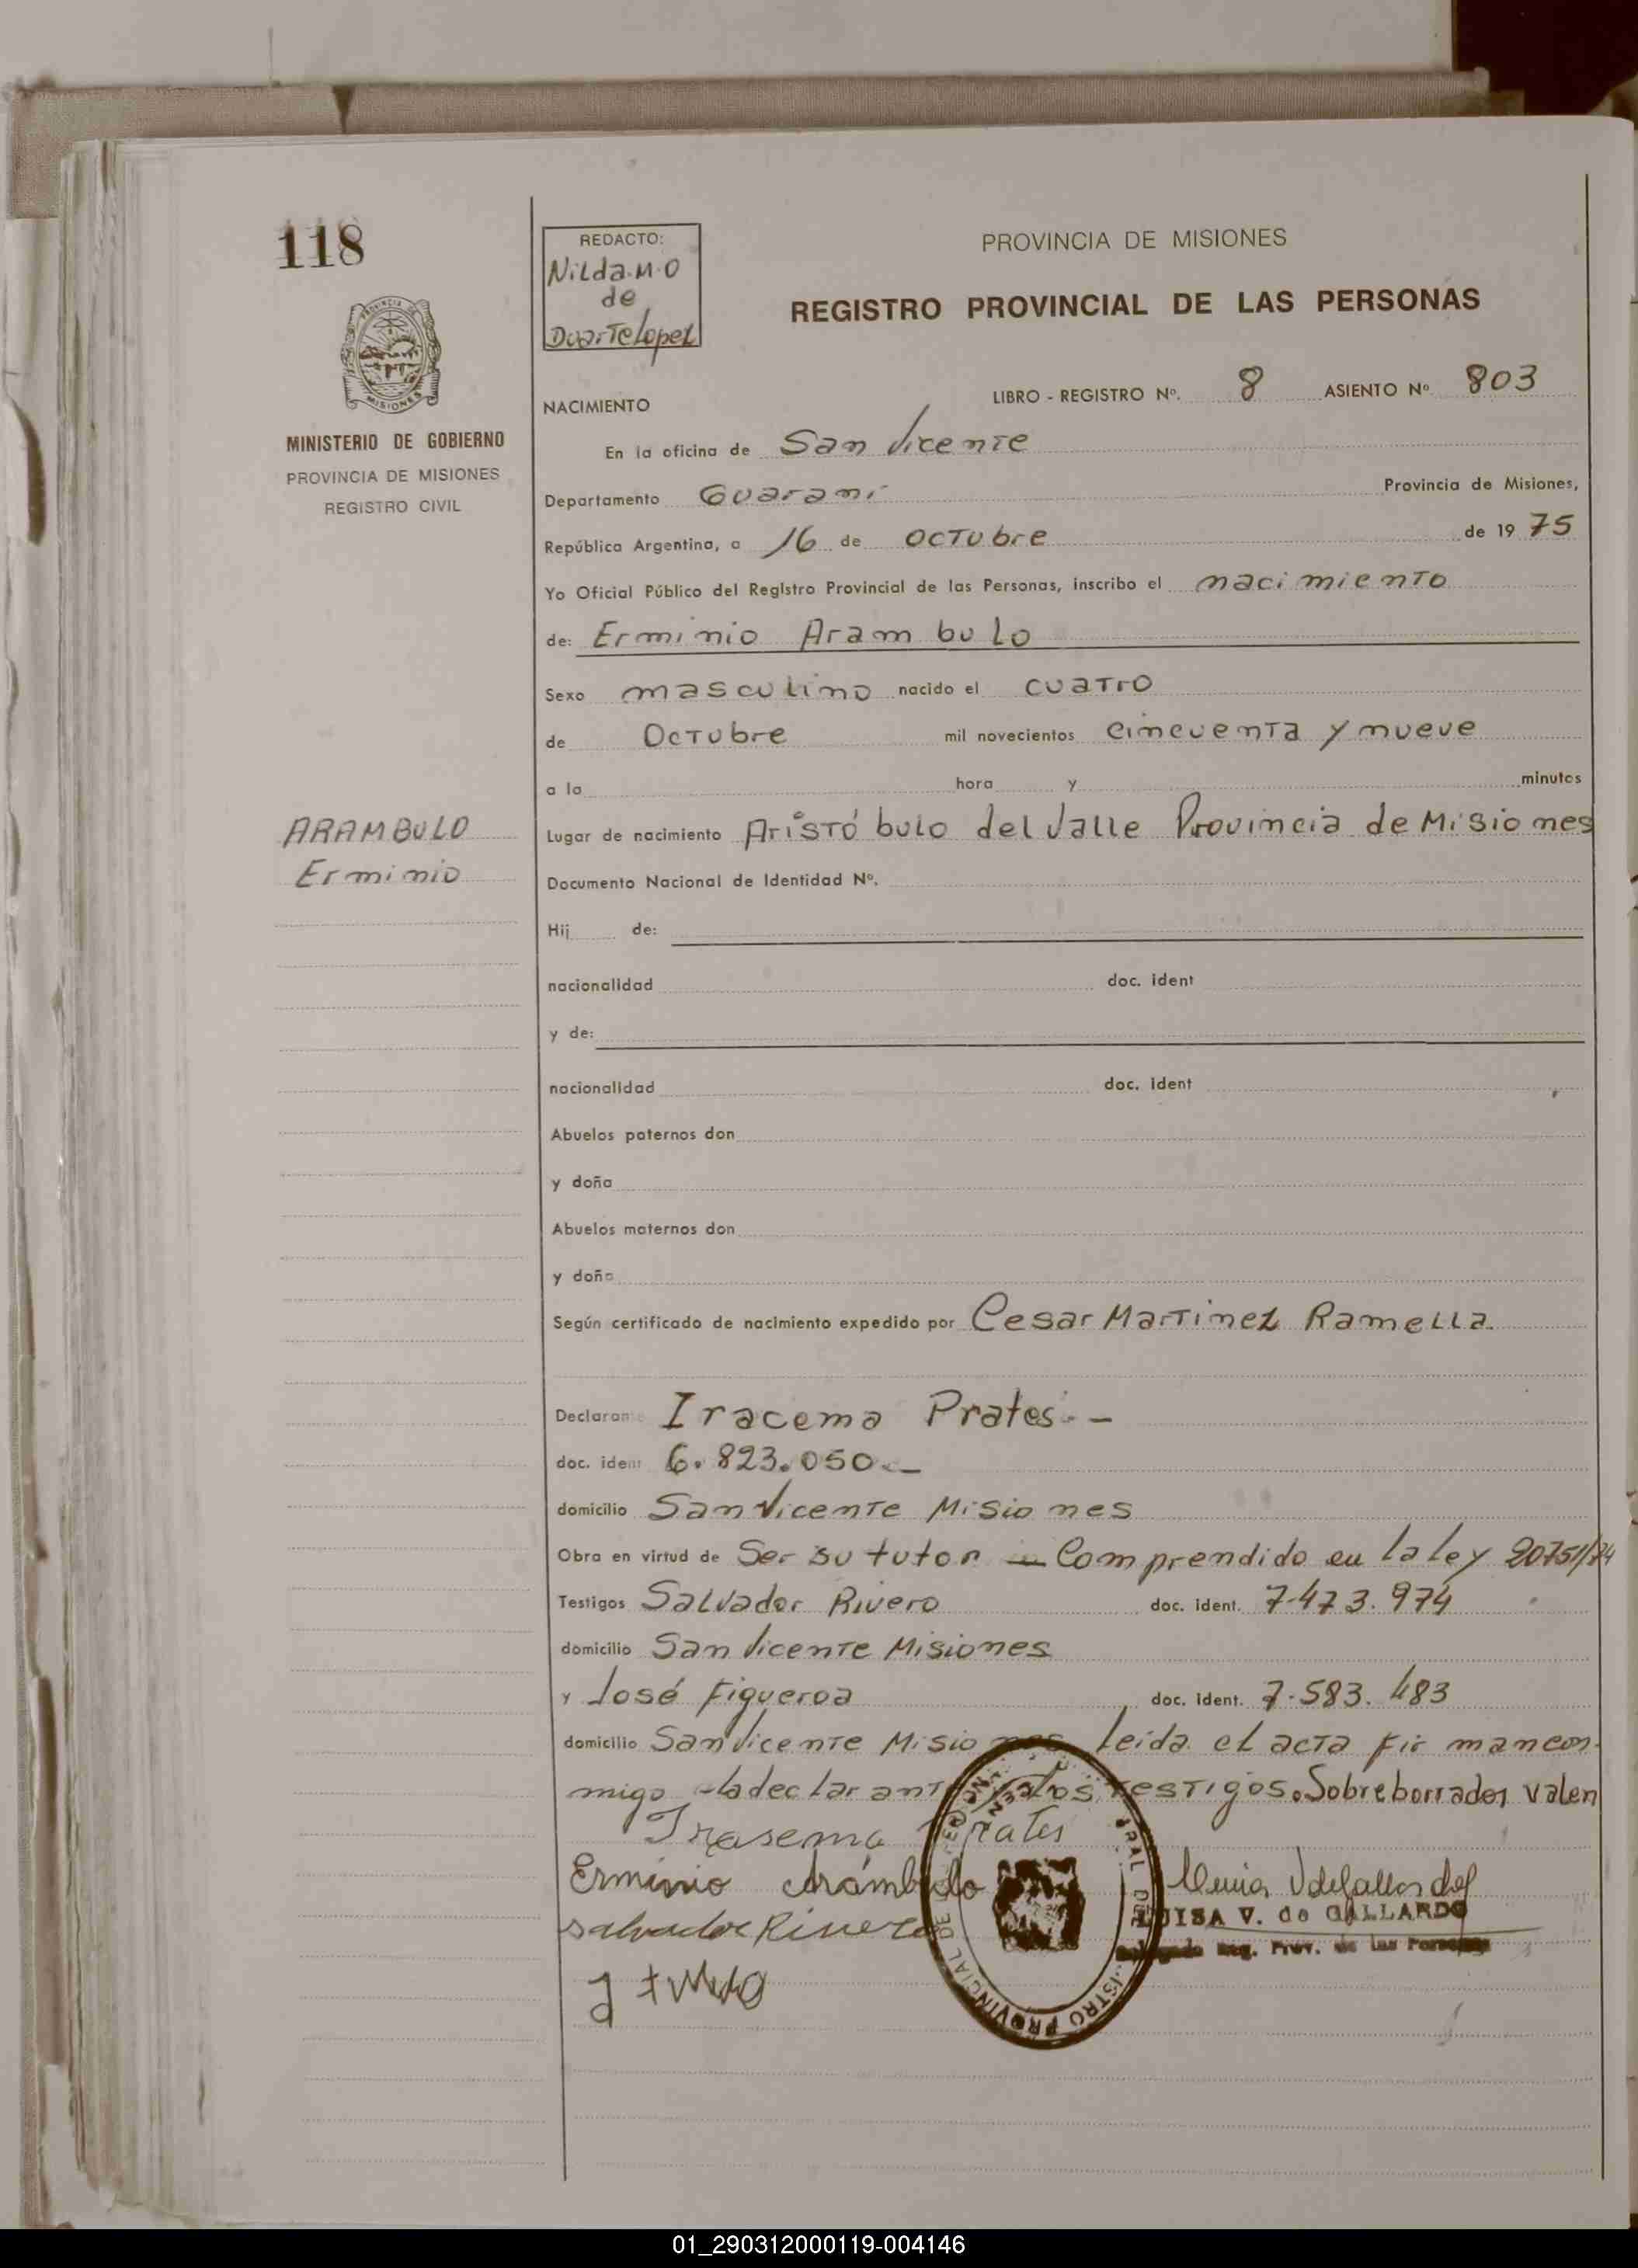 118
REDACTO:
Nilda.M.O
de
Duarte Lopez
PROVINCIA DE MISIONES
REGISTRO PROVINCIAL DE LAS PERSONAS
MINISTERIO DE GOBIERNO
PROVINCIA DE MISIONES
REGISTRO CIVIL
LIBRO - REGISTRO Nº. 8 ASIENTO Nº 803
NACIMIENTO
En la oficina de San Vicente
Departamento Guaraní Provincia de Misiones,
República Argentina, a 16 de Octubre de 19 75
Yo Oficial Público del Registro Provincial de las Personas, inscribo el nacimiento
de: Erminio Arambulo
Sexo masculino nacido el cuatro
de Octubre mil novecientos cincuenta y nueve
a la hora y minutos
ARAMBULO
Erminio
Lugar de nacimiento Aristóbulo del Valle Provincia de Misiones
Documento Nacional de Identidad Nº.
Hij de:
nacionalidad doc. ident
y de:
nacionalidad doc. ident
Abuelos paternos don
y doña
Abuelos maternos don
y doña
Según certificado de nacimiento expedido por Cesar Martinez Ramella.
Declarante Iracema Prates.-
doc. ident 6.823.050.-
domicilio San Vicente Misiones
Obra en virtud de Ser su tutor - Comprendido en la ley 20751/74
Testigos Salvador Rivero doc. ident. 7.473.974
domicilio San Vicente Misiones
y José Figueroa doc. ident. 7.583.483
domicilio San Vicente Misiones leida el acta firman con-
migo la declarante y los testigos. Sobreborrados valen
Irasema Prates
Erminio Arámbulo
Salvador Rivero
LUISA V. de GALLARDO
Delegada Reg. Prov. de las Personas
01_290312000119-004146